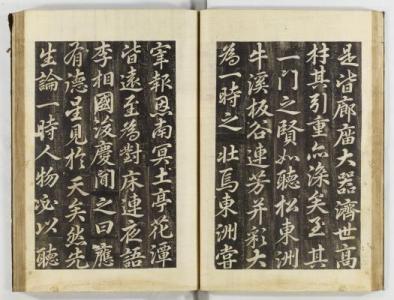 是皆廊廟大器濟世高
材其引重亦深矣至其
一門之賢如聽松東洲
牛溪板谷連芳并彩大
為一時之壯焉東洲嘗
宰報恩南冥土亭花潭
皆遠至為對床連夜語
李相國浚慶聞之曰應
有德星見於天矣然先
生論一時人物必以聽